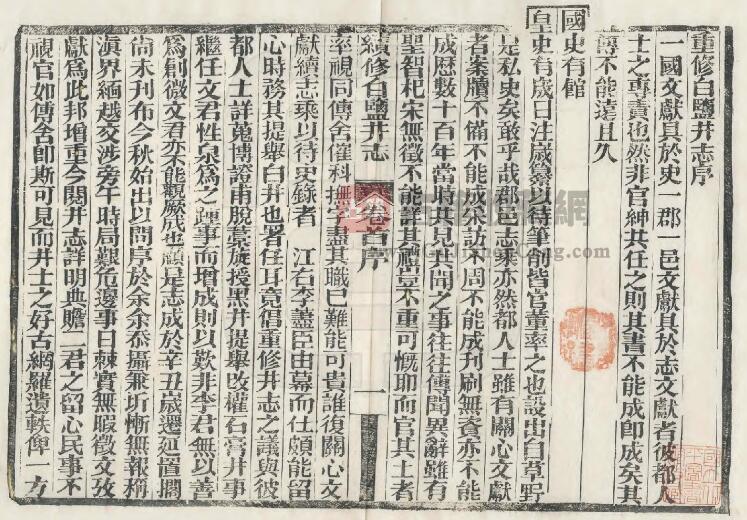 重修白鹽井志序
一國文獻具於史一郡一邑文獻具於志文獻者彼都人
士之專責也然非官紳共任之則其書不能成即成矣其
傳不能遠且久
國史有館
皇史有宬日注歲纂以待筆削皆官董率之也設出自草野
是私史矣敢乎哉郡邑志乘亦然都人士雖有關心文獻
者案牘不備不能成采訪不周不能成刊刷無資亦不能
成歷數十百年當時共見共聞之事往往傳聞異辭雖有
聖智杞宋無徵不能詳其禮豈不重可慨耶而官其土者
續修白鹽井志 卷首序 一
率視同傳舍催科撫字盡其職已難能可貴誰復關心文
獻續志乘以待史錄者 江右李藎臣由幕而仕頗能留
心時務其提舉白井也署任耳竟倡重修井志之議與彼
都人士詳蒐博證甫脫藁旋授黑井提舉改權石膏井事
繼任文君性泉為之踵事而增成則以歎非李君無以善
為創微文君亦不能觀厥成也顧是志成於辛丑歲遷延置擱
尚未刊布今秋始出以問序於余余忝攝兼圻慚無報稱
滇界緬越交涉旁午時局艱危邊事日棘實無暇徵文攷
獻為此邦增重今閱井志詳明典贍二君之留心民事不
視官如傳舍即斯可見而井士之好古網羅遺軼俾一方